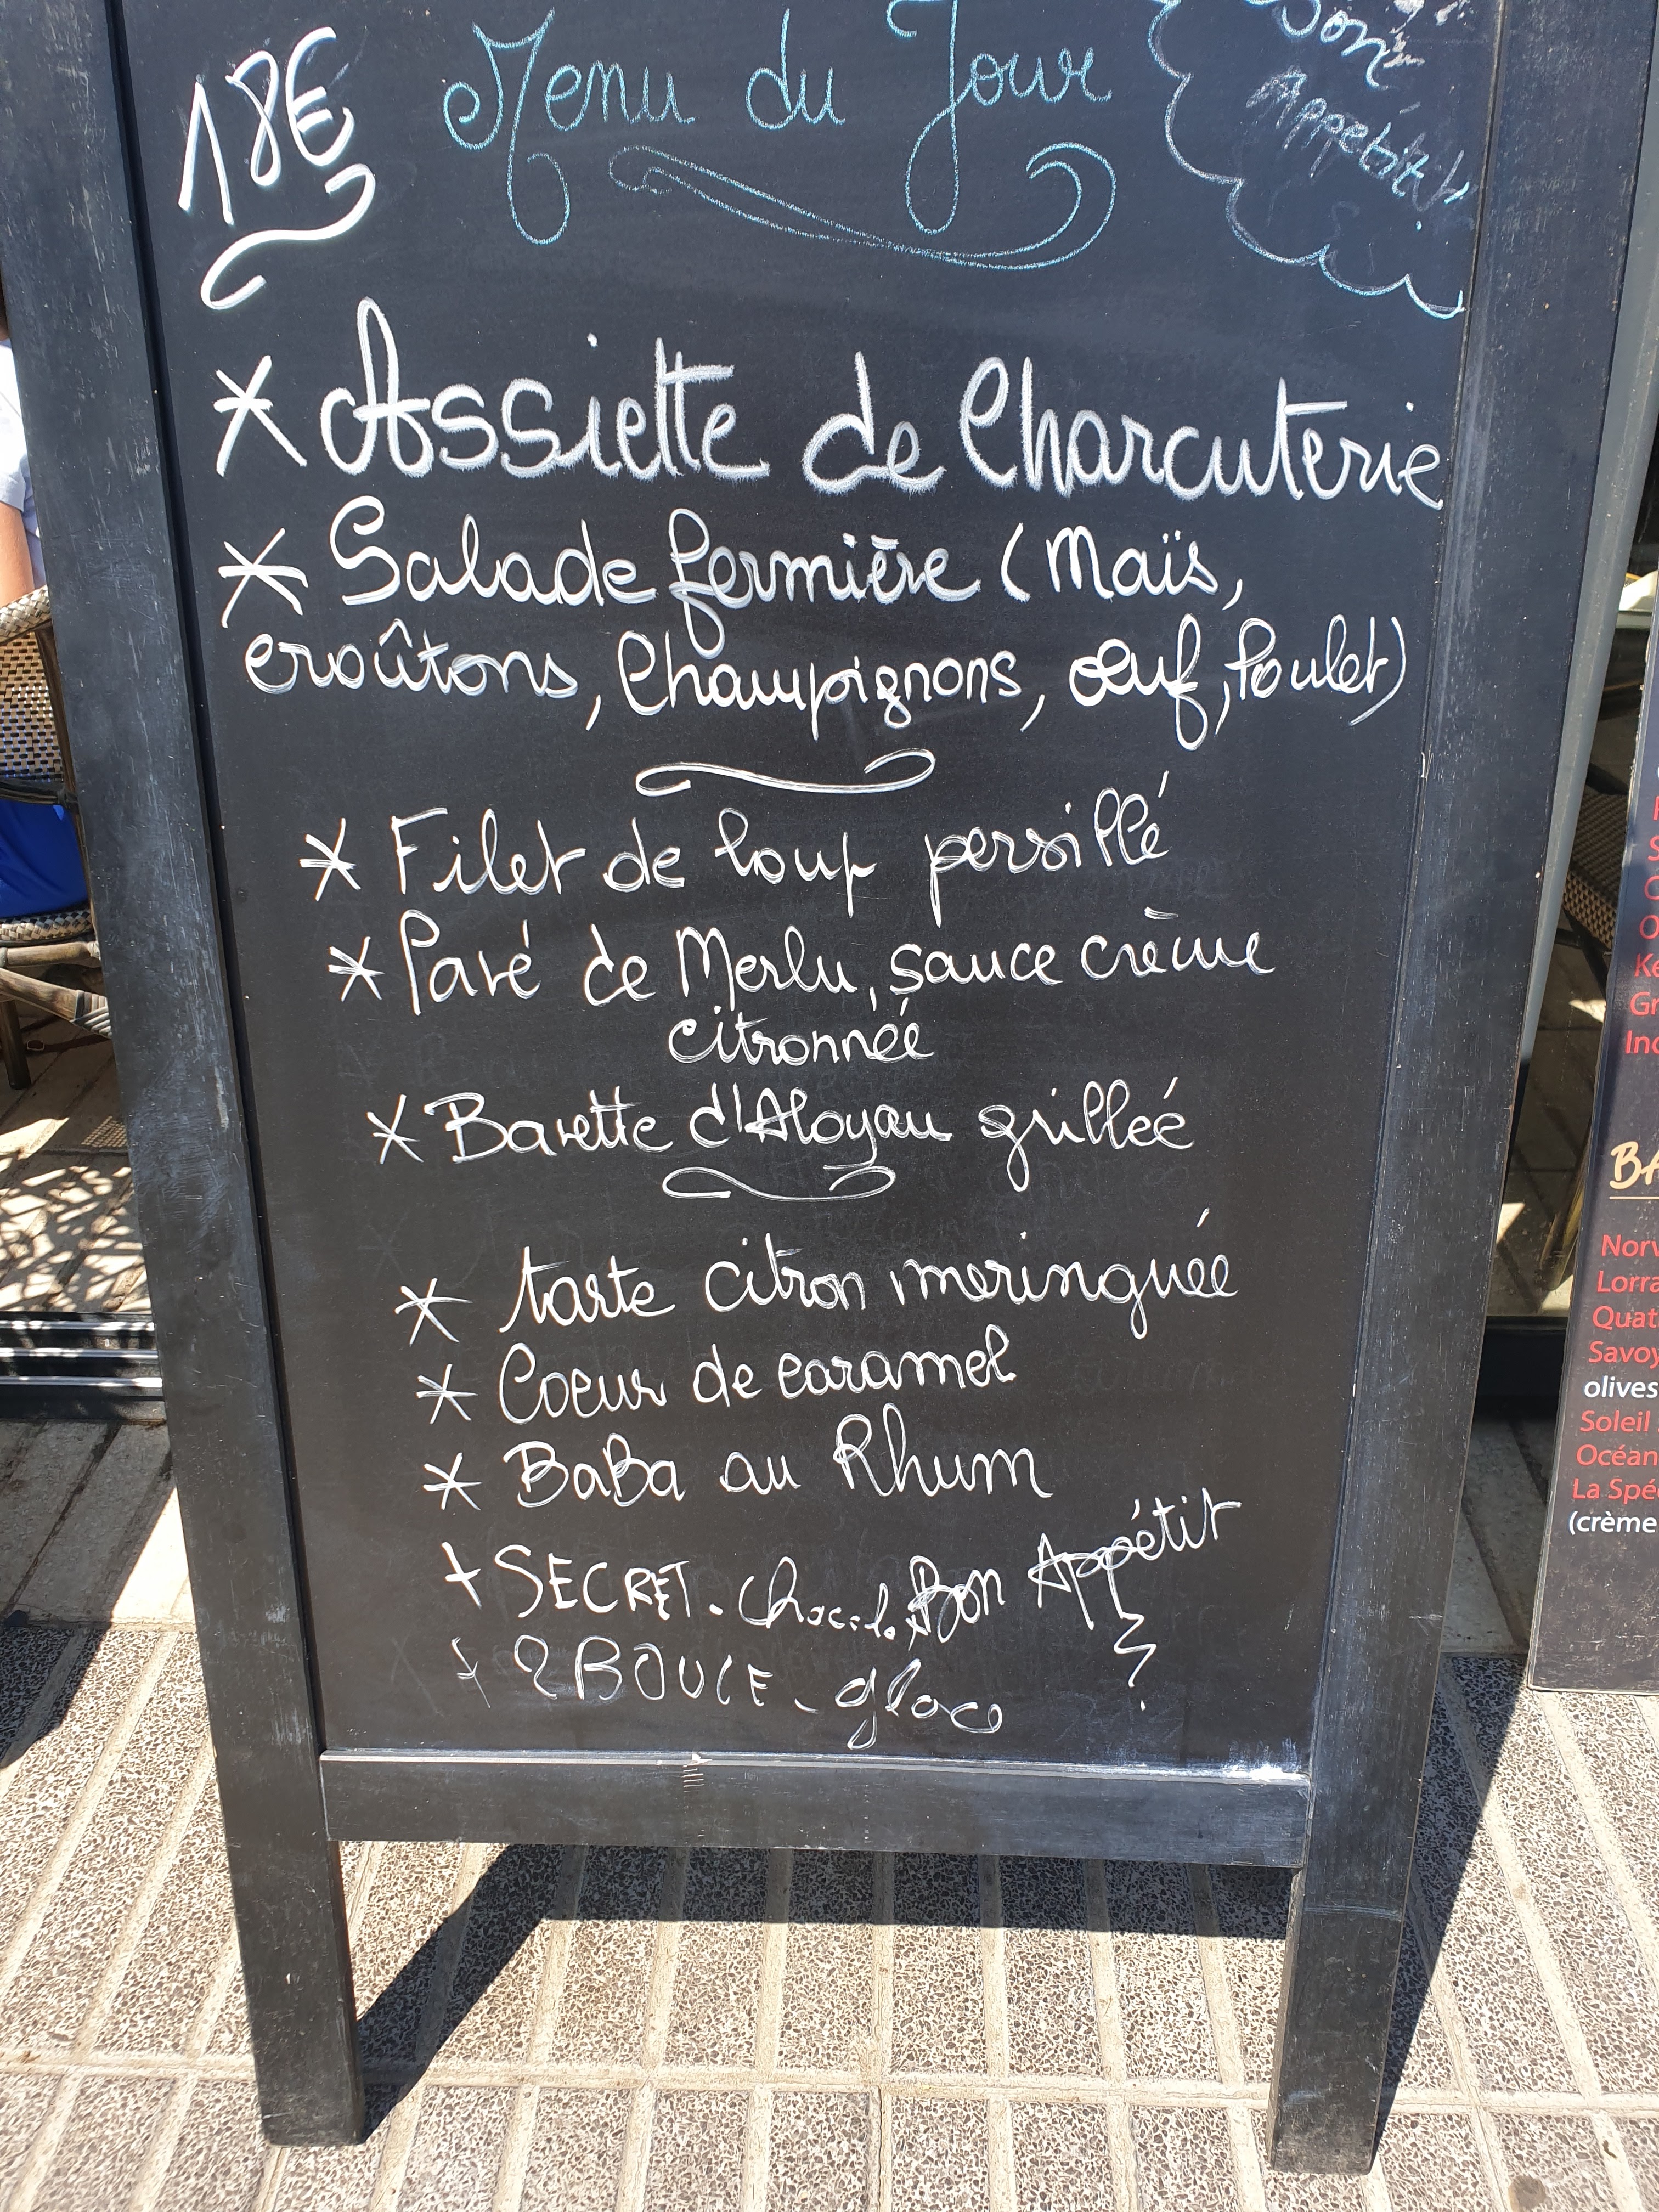 18€
Menu du Jour
Bon
Appétit!
* Assiette de Charcuterie
* Salade fermière (Maïs,
croûtons, Champignons, œuf, Poulet)
* Filet de loup persillé
* Pavé de Merlu, sauce crème
citronnée
* Bavette d'Aloyau grillée
* tarte citron meringuée
* Coeur de caramel
* BaBa au Rhum
+ SECRET. Chocolo Bon Appétit
+ 2 BOULE - glace
Ke
Gr
Inc
BA
Norv
Lorra
Quat
Savoy
olives
Soleil
Océan
La Spé
(crème